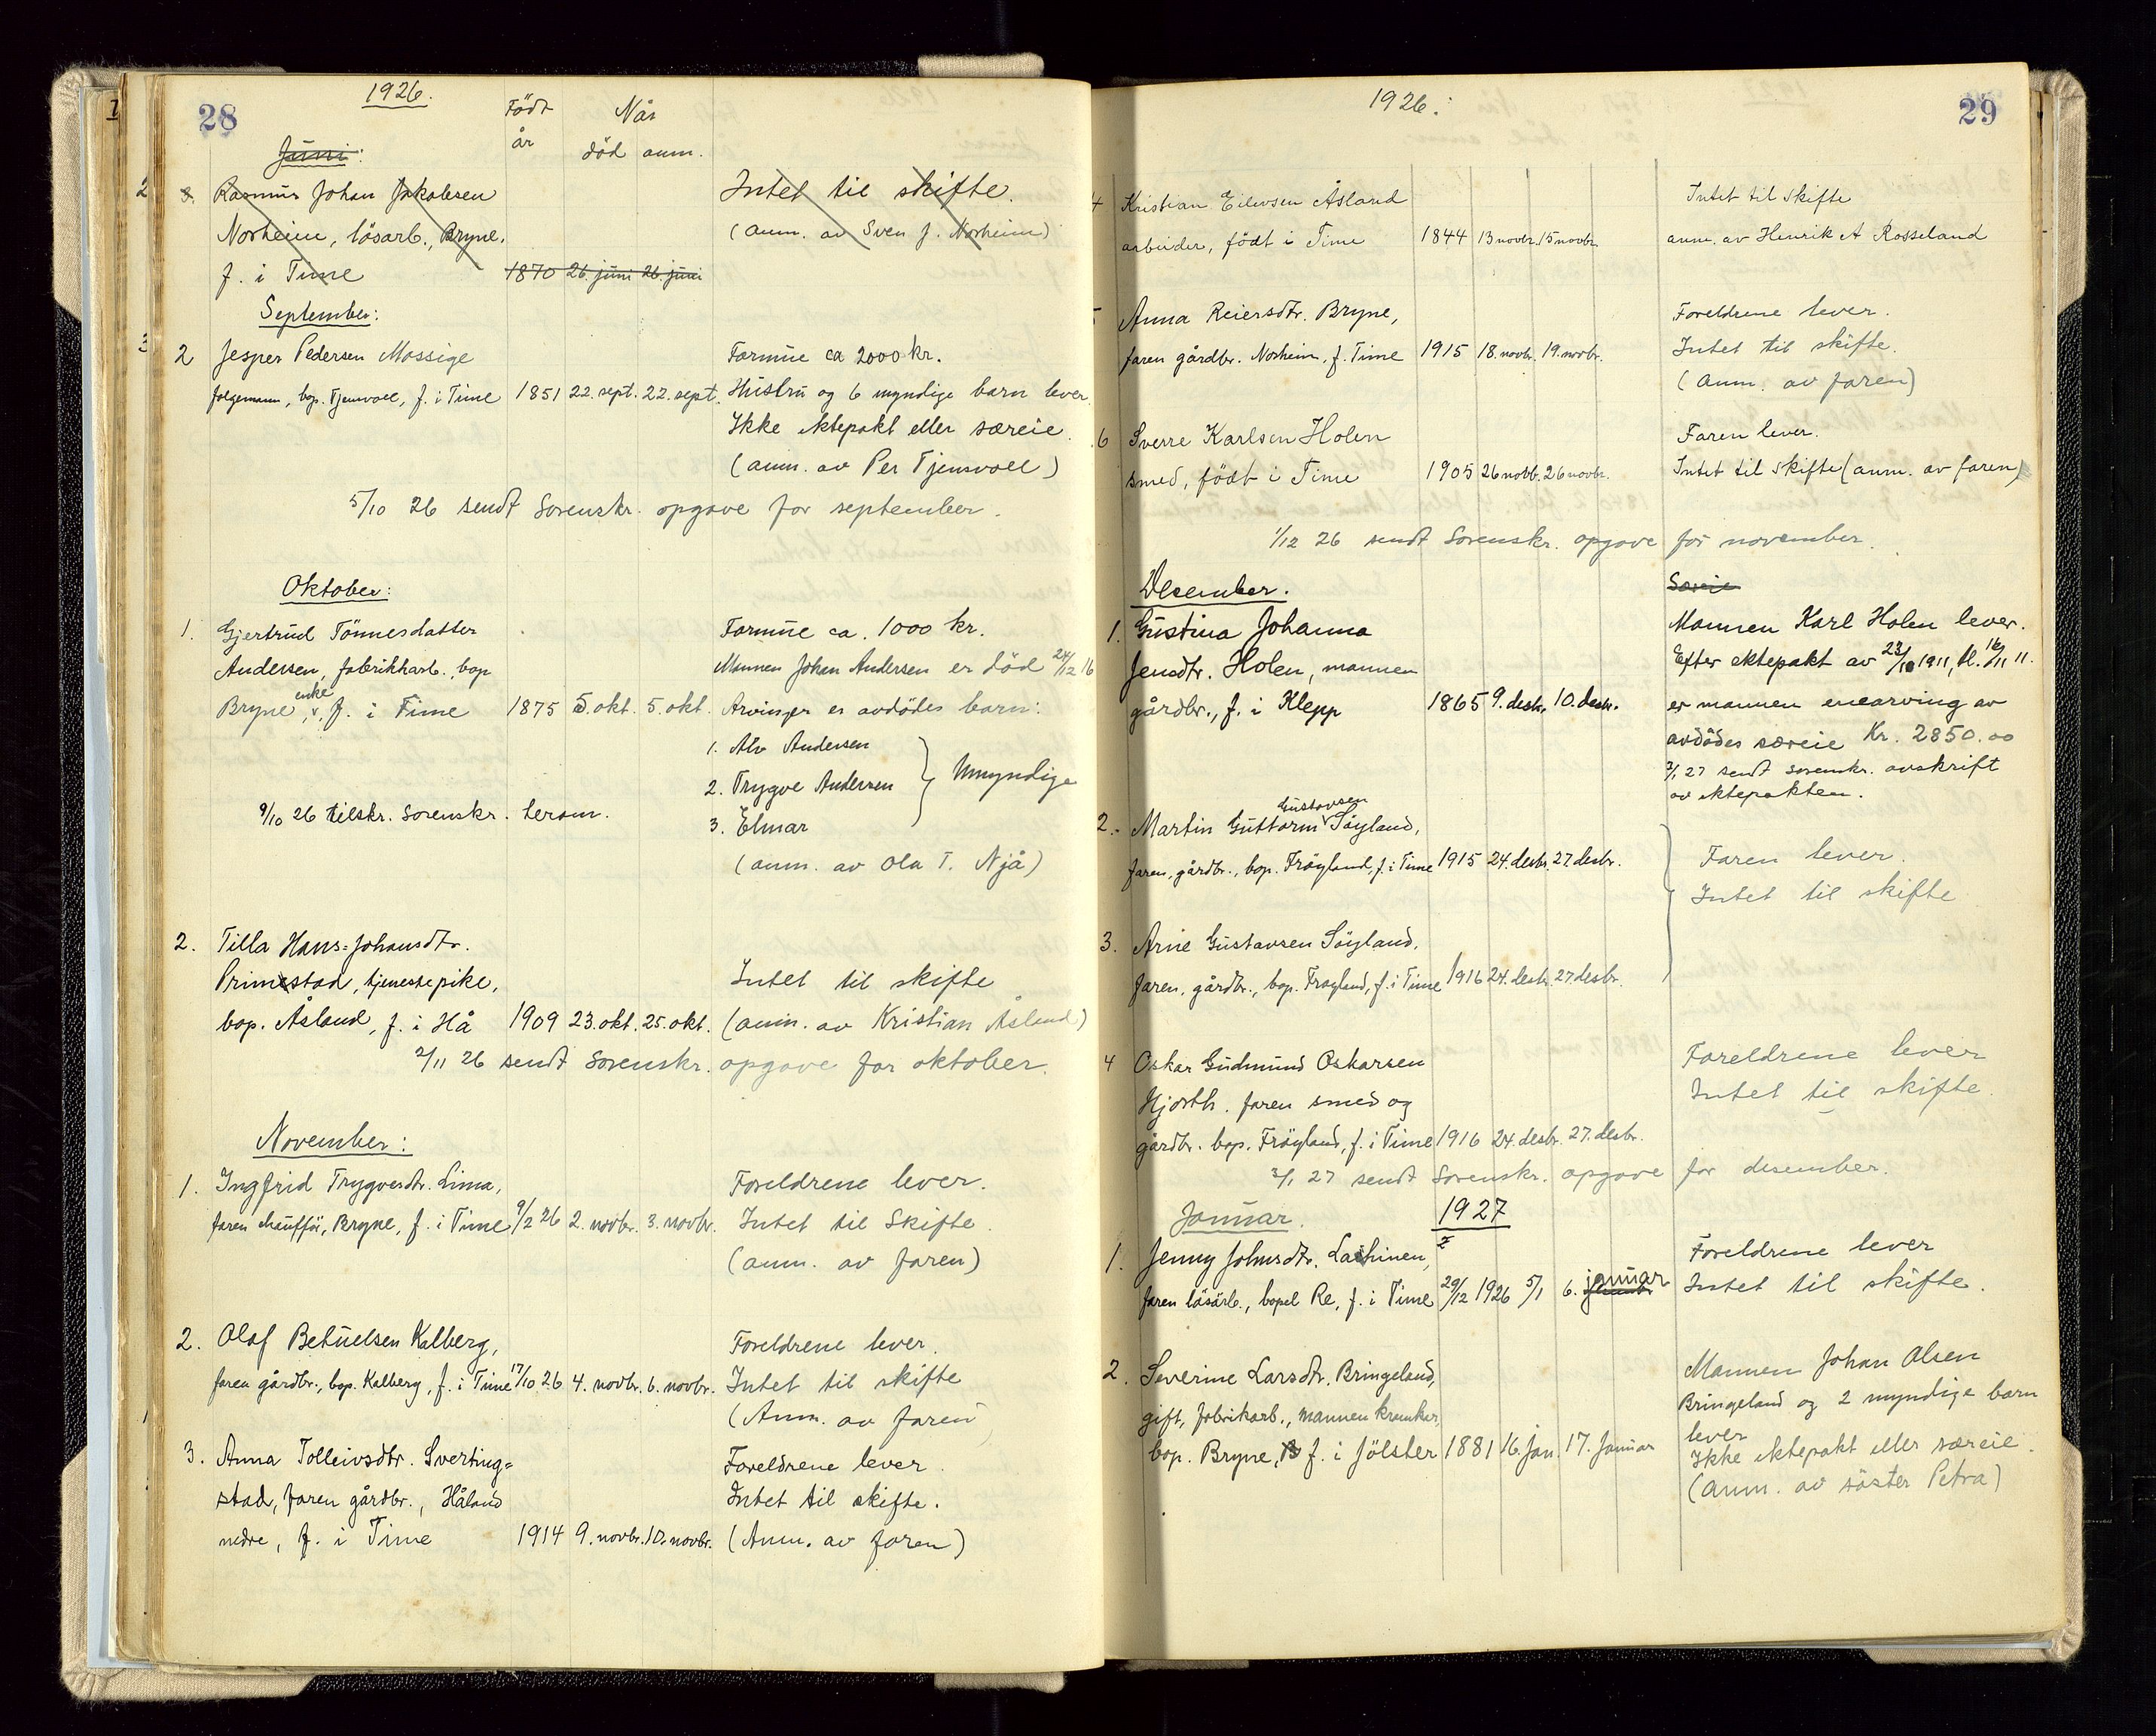 28
1926.
Født år
Når
død anm.
Juni:
3. Rasmus Johan Jakobsen
Norheim, løsarb., Bryne,
f. i Time 1870 26. juni 26. juni
Intet til skifte.
(anm. av Sven J. Norheim)
September:
2 Jesper Pedersen Mossige
folgemann, bop. Tjensvoll, f. i Time 1851 22. sept. 22. sept.
Formue ca 2000 kr.
Hustru og 6 myndige barn lever.
Ikke ektepakt eller særeie.
(anm. av Per Tjensvoll)
5/10 26 sendt Sorenskr. opgave for september.
Oktober:
1. Gjertrud Tönnesdatter
Andersen, fabrikkarb., bop
Bryne, enke, f. i Time 1875 5. okt. 5. okt.
Formue ca. 1000 kr.
Mannen Johan Andersen er död 24/12 16
Arvinger er avdödes barn:
1. Alv Andersen
2. Trygve Andersen
3. Elmar
Umyndige
(anm. av Ola T. Njå)
9/10 26 tilskr. Sorenskr. herom.
2. Tilla Hans-Johansdtr.
Primestad, tjenestepike,
bop. Åsland, f. i Hå 1909 23. okt. 25. okt.
Intet til skifte
(anm. av Kristian Åsland)
2/11 26 sendt Sorenskr. opgave for oktober.
November:
1. Ingfrid Trygvesdtr. Lima,
faren chaufför, Bryne, f. i Time 9/2 26 2. novbr. 3. novbr.
Foreldrene lever.
Intet til Skifte.
(anm. av faren)
2. Olaf Betuelsen Kalberg,
faren gårdbr., bop. Kalberg, f. i Time 17/10 26 4. novbr. 6. novbr.
Foreldrene lever.
Intet til skifte
(Anm. av faren
3. Anna Tolleivsdtr. Sverting=
stad, faren gårdbr., Håland
nedre, f. i Time 1914 9. novbr. 10. novbr.
Foreldrene lever.
Intet til skifte.
(Anm. av faren)
29
1926.
4 Kristian Eilevsen Åsland
arbeider, födt i Time 1844 13 novbr. 15 novbr.
Intet til Skifte
anm. av Henrik A Rosseland
Anna Reiersdtr. Bryne,
faren gårdbr. Norheim, f. Time 1915 18. novbr. 19. novbr.
Foreldrene lever.
Intet til skifte.
(anm. av faren)
6 Sverre Karlsen Holen
smed, födt i Time 1905 26 novbr. 26 novbr.
Faren lever.
Intet til Skifte (anm. av faren)
1/12 26 sendt Sorenskr. opgave for november.
Desember.
1. Gustina Johanna
Jensdtr. Holen, mannen
gårdbr., f. i Klepp 1865 9. desbr. 10. desbr.
Særeie
Mannen Karl Holen lever.
Efter ektepakt av 23/10 1911, tl. 16/11 11.
er mannen enearving av
avdödes særeie Kr. 2850.00
3/1 27 sendt sorenskr. avskrift
av ektepakten.
2. Martin Guttorm Gustavsen Söyland,
faren, gårdbr., bop. Fröyland, f. i Time 1915 24. desbr. 27 desbr.
Faren lever.
Intet til skifte
3. Arne Gustavsen Söyland.
faren, gårdbr., bop. Fröyland, f. i Time 1916 24. desbr. 27 desbr.
4 Oskar Gudmund Oskarsen
Hjorth. faren smed og
gårdbr. bop. Fröyland, f. i Time 1916 24. desbr. 27. desbr.
Foreldrene lever
Intet til skifte.
3/1 27 sendt Sorenskr. opgave for desember.
1927
Januar.
1. Jenny Johnsdtr.
faren lösarb., bopel Re, f. i Time 29/12 1926 5/1 6. januar
Foreldrene lever
Intet til skifte.
2. Severine Larsdtr. Bringeland,
gift, fabrikarb., mannen
bop. Bryne, f. i Jölster 1881 16. Jan. 17. Januar
Mannen Johan Olsen
Bringeland og 2 myndige barn
lever
Ikke ektepakt eller særeie.
(anm. av söster Petra)